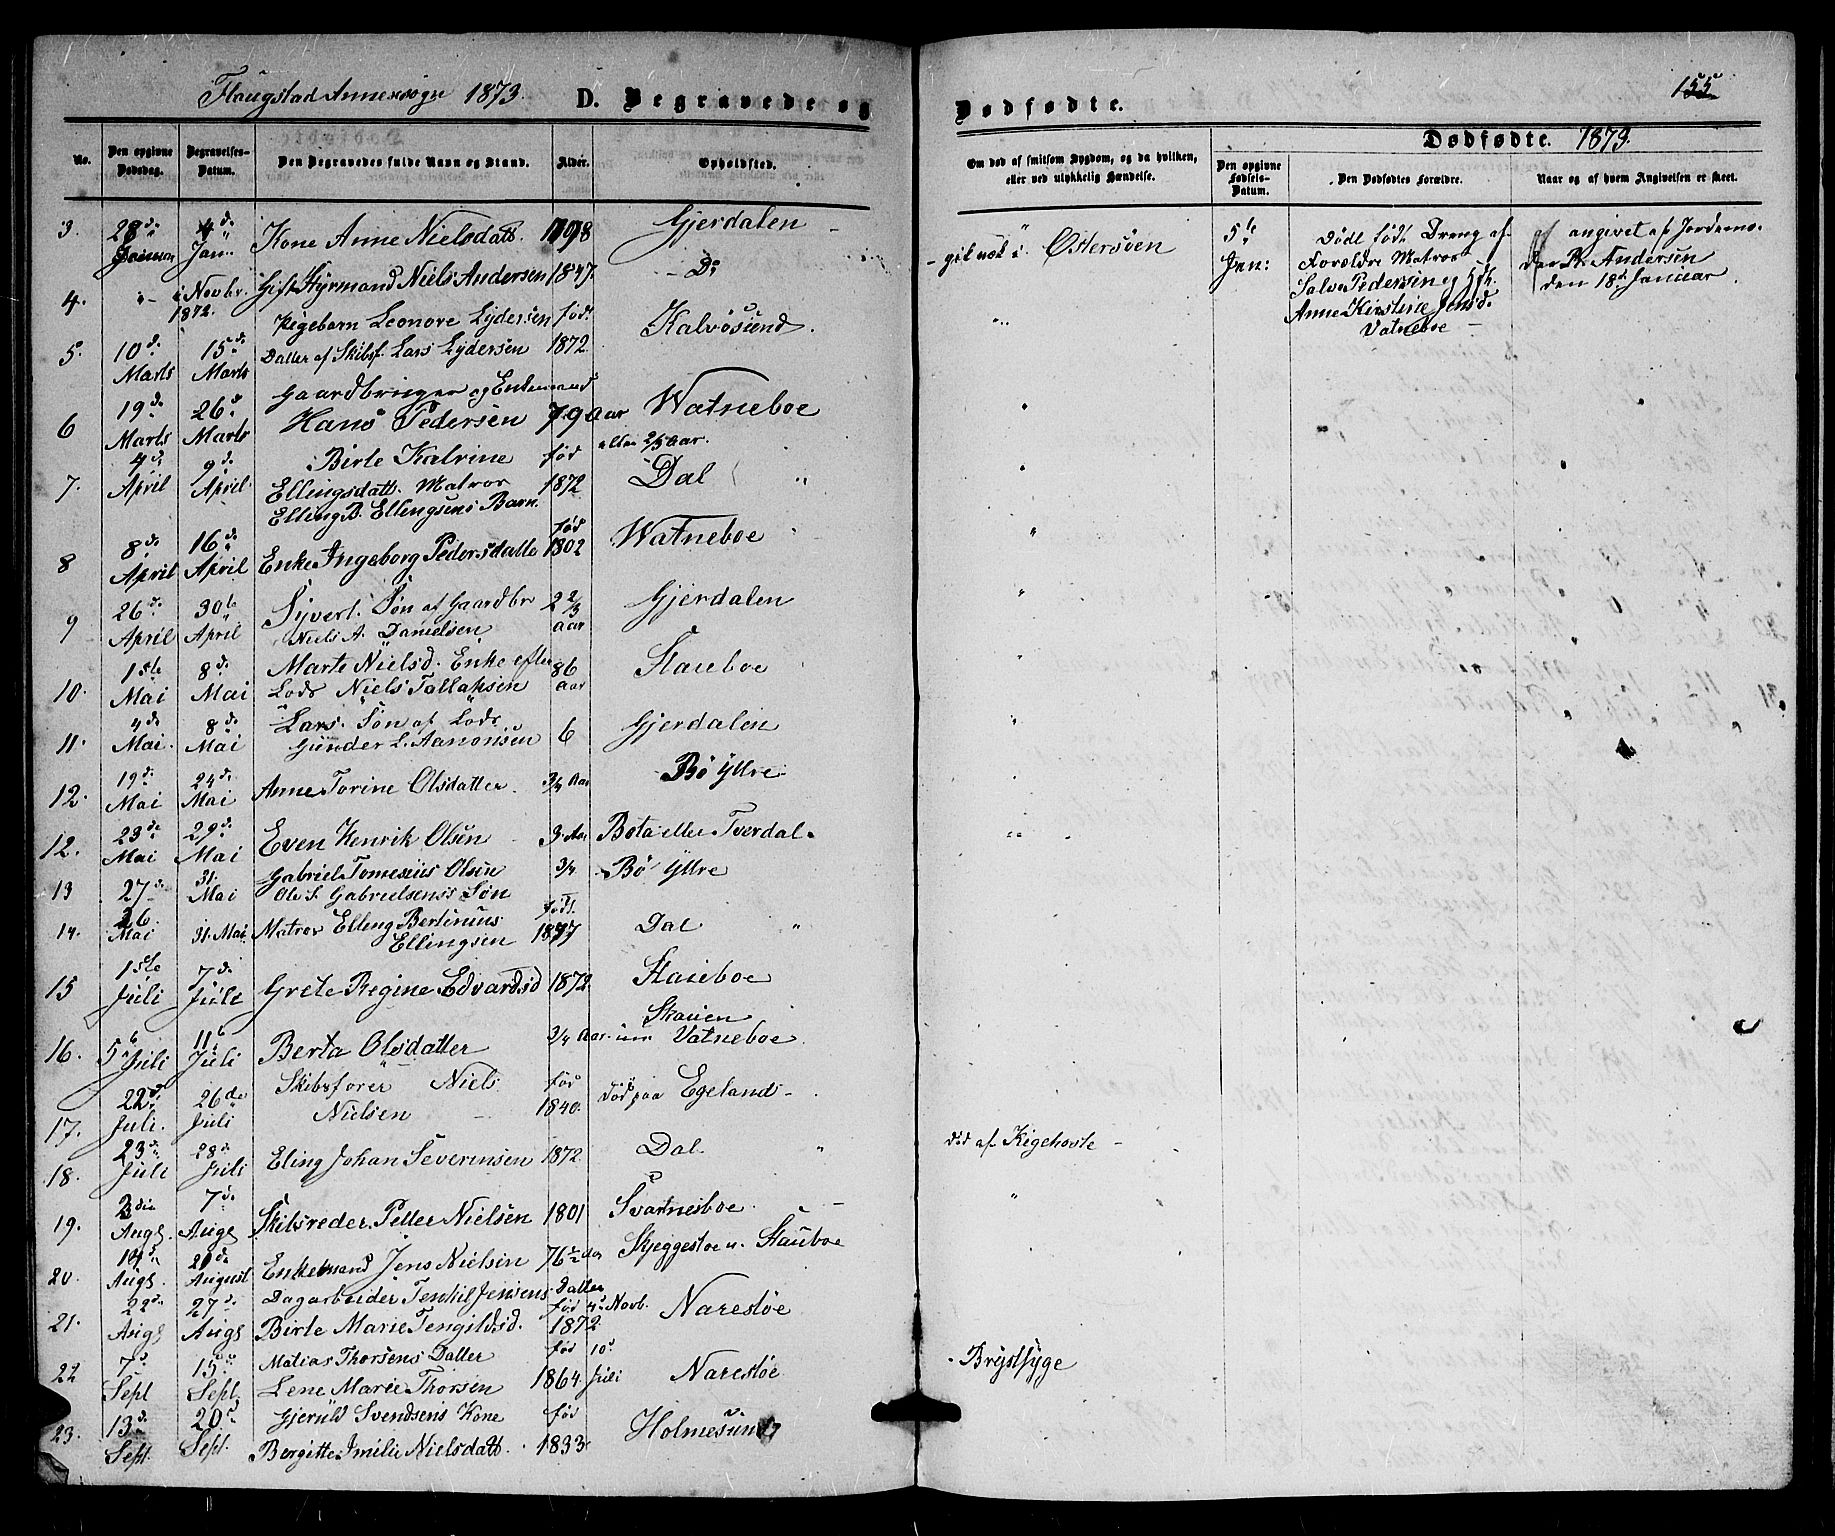 Flaugstad Annexsogn 1873. D. Begravede og
No.
Den opgivne Dødsdag.
Begravelses-Datum.
Den Begravedes fulde Navn og Stand.
Alder.
Opholdssted.
3. 28de 4de Jan: Kone Anne Nielsdatt. 1798 Gjerdalen
4. Novbr. 1872. Gift Styrmand Niels Andersen 1847. Do
Pigebarn Leonore Lydersen født Kalvøsund.
5. 10de Marts 15de Marts Datter af Skibsf. Lars Lydersen 1872.
Gaardbruger og Enkemand
6 19de Marts 26de Marts Hans Pedersen 79 Aar Watneboe
Birte Katrine fød
7. 4de April 9de April Ellingsdatt. Matros 1872 Dal
Elling B. Ellingsens Barn.
8 8de April 16de April Enke Ingeborg Pedersdatter fød 1802 Watneboe
9 26de April 30te April Syvert. Søn af Gaardbr 2 2/3 Aar Gjerdalen
Niels A. Danielsen
10. 1ste Mai 8de Mai Marte Nielsd. Enke efter 86 Aar Staueboe
Lods Niels Tallaksen
11. 4de Mai. 8de Mai Lars. Søn af Lods 6 Gjerdalen
Gunder L. Aanonsen
12. 19de Mai 24de Mai Anne Torine Olsdatter. 3/4 Aar Bø Yttre
12. 23de Mai 29de Mai Even Henrik Olsen 3 Aar Bota eller Tverdal.
13 27de 31. Mai Gabriel Tomesius Olsen 3/4 Bø Yttre
Ole S. Gabrielsens Søn
14. 26. Mai 31. Mai Matros Elling Bertinius født. Dal
Ellingsen
15 1ste Juli 7de Juli Grete Regine Edvardsd 1872. Staueboe
16. 5te Juli 11te Juli Berta Olsdatter 3/4 Aar Skauen un Vatneboe.
17. 22de Juli. 26de Juli Skibsfører Niels fød død paa Egeland
Nielsen 1840.
18. 23de Juli 28de Juli Eling Johan Severinsen 1872. Dal
19. 3die Augs. 7de Augs Skibsreder. Petter Nielsen 1801 Svartnesboe.
20. 19de Augs. 21de August Enkemand Jens Nielsen 76 1/2 Aar Skjeggestoe u. Stauboe
Dagarbeider Tenkil Jensens Datter
21. 22de Augs 27de Augs Birte Marie Tengildsd. fød 4de Novb. 1872 Narestøe
Matias Thorsens Datter fød 10de
22 7de Sept 15de Sept. Lene Marie Thorsen 1864. Juli Narestøe
Gjeruld Svendsens Kone fød
23. 13de Sept. 20de Sept. Bergitte Imilie Nielsdatt. 1833. Holmesund
155
Dødfødte.
Dødfødte. 1873.
Om død af smitsom Sygdom, og da hvilken,
eller ved ulykkelig Hændelse.
Den opgivne Fødsels-Datum.
Den Dødfødtes Forældre.
Naar og af hvem Angivelsen er skeet.
Østersøen
5te Jan:
Døde født Dreng af
Forældre Matros
Salve Pedersen og
Anne Kirstine Jensd.
Vatneboe
angivet af Jordemo-
der Andersen
den 18de Januar
død af Kigehoste
Brystsyge